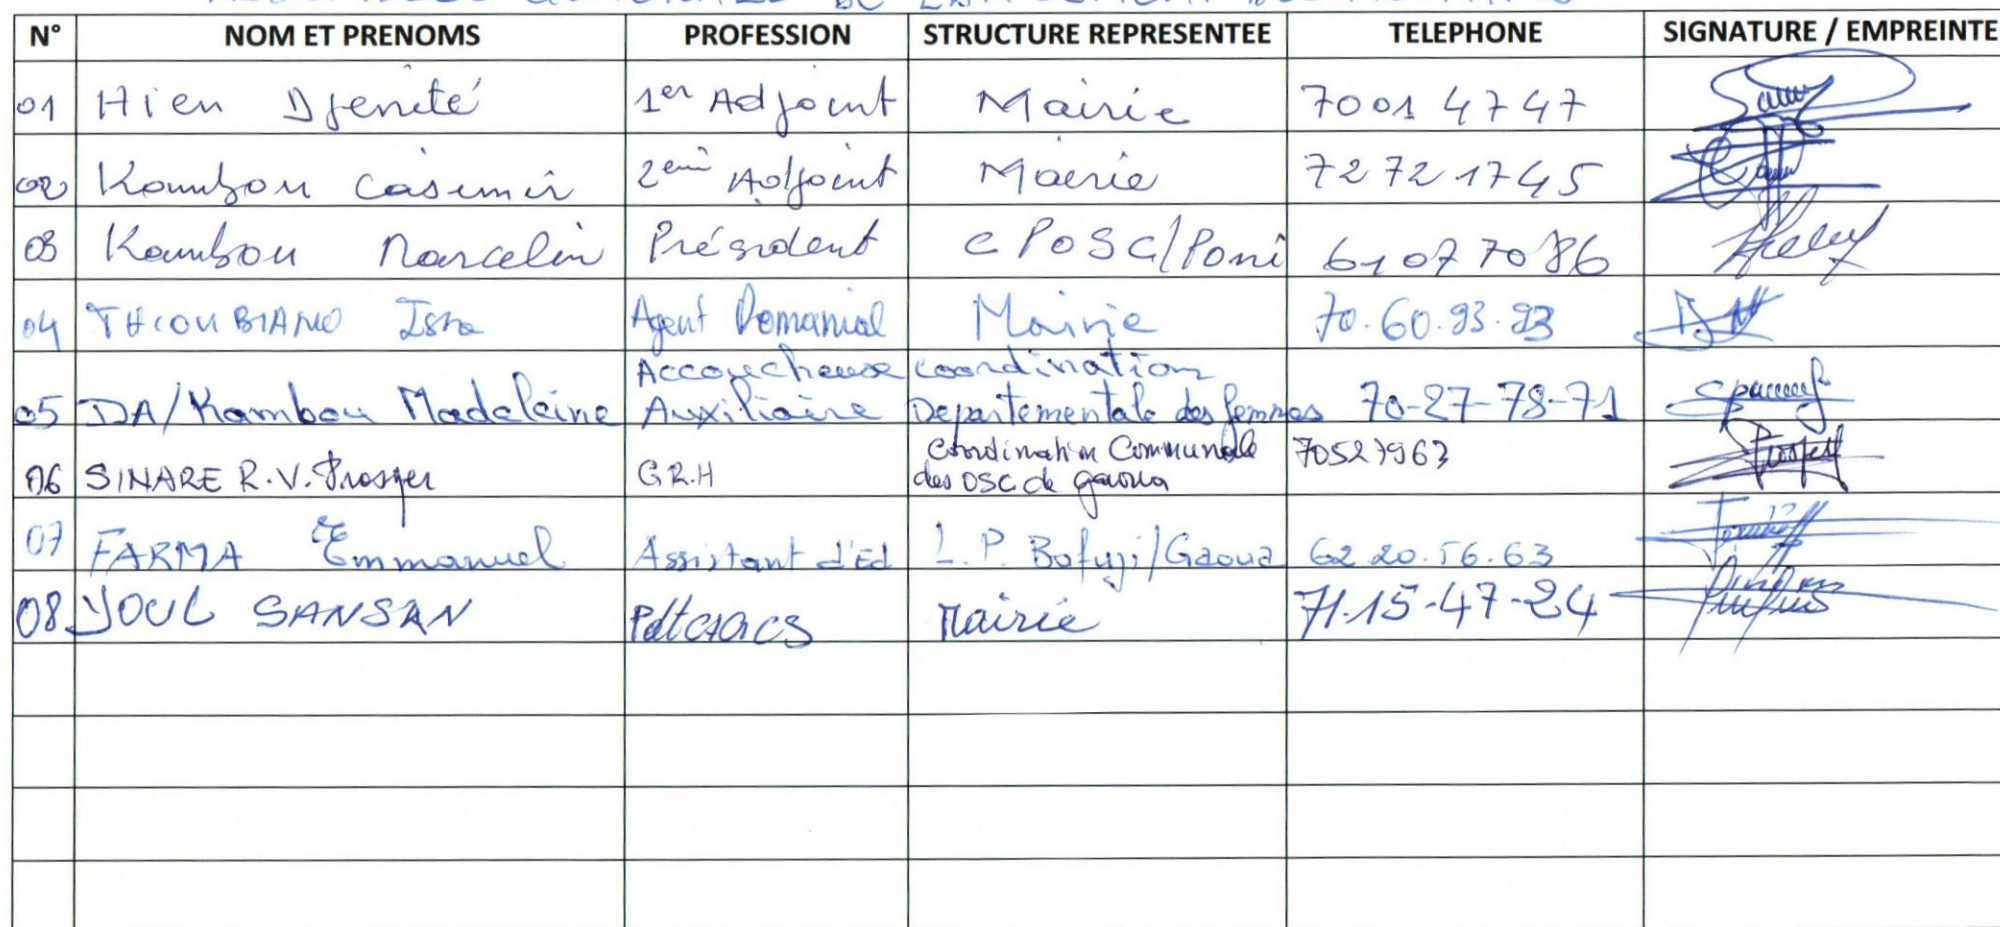 N° NOM ET PRENOMS PROFESSION STRUCTURE REPRESENTEE TELEPHONE SIGNATURE / EMPREINTE
01 Hien Djenité 1er Adjoint Mairie 70014747
02 Kambou Casimir 2eme Adjoint Mairie 72721745
03 Kambou Marcelin Président CPOSC/Poni 61077086
04 THIOUBIANO Issa Agent Domanial Mairie 70.60.93.93
Accoucheuse coordination
05 DA/Kambou Madeleine Auxiliaire Departementale des femmes 70-27-78-71
Coordination Communale
06 SINARE R.V. Prosper G.R.H des OSC de gaoua 70527963
07 FARMA Emmanuel Assistant d'Ed L.P. Bafuji/Gaoua 62.20.56.63
08 YOUL SANSAN Mairie 71-15-47-24